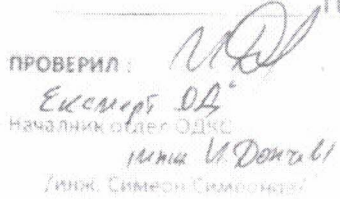 ПРОВЕРИЛ:
Експерт ОД"
Началник отдел ОДКС
инж И. Дончев
/инж. Симеон Симеонов/